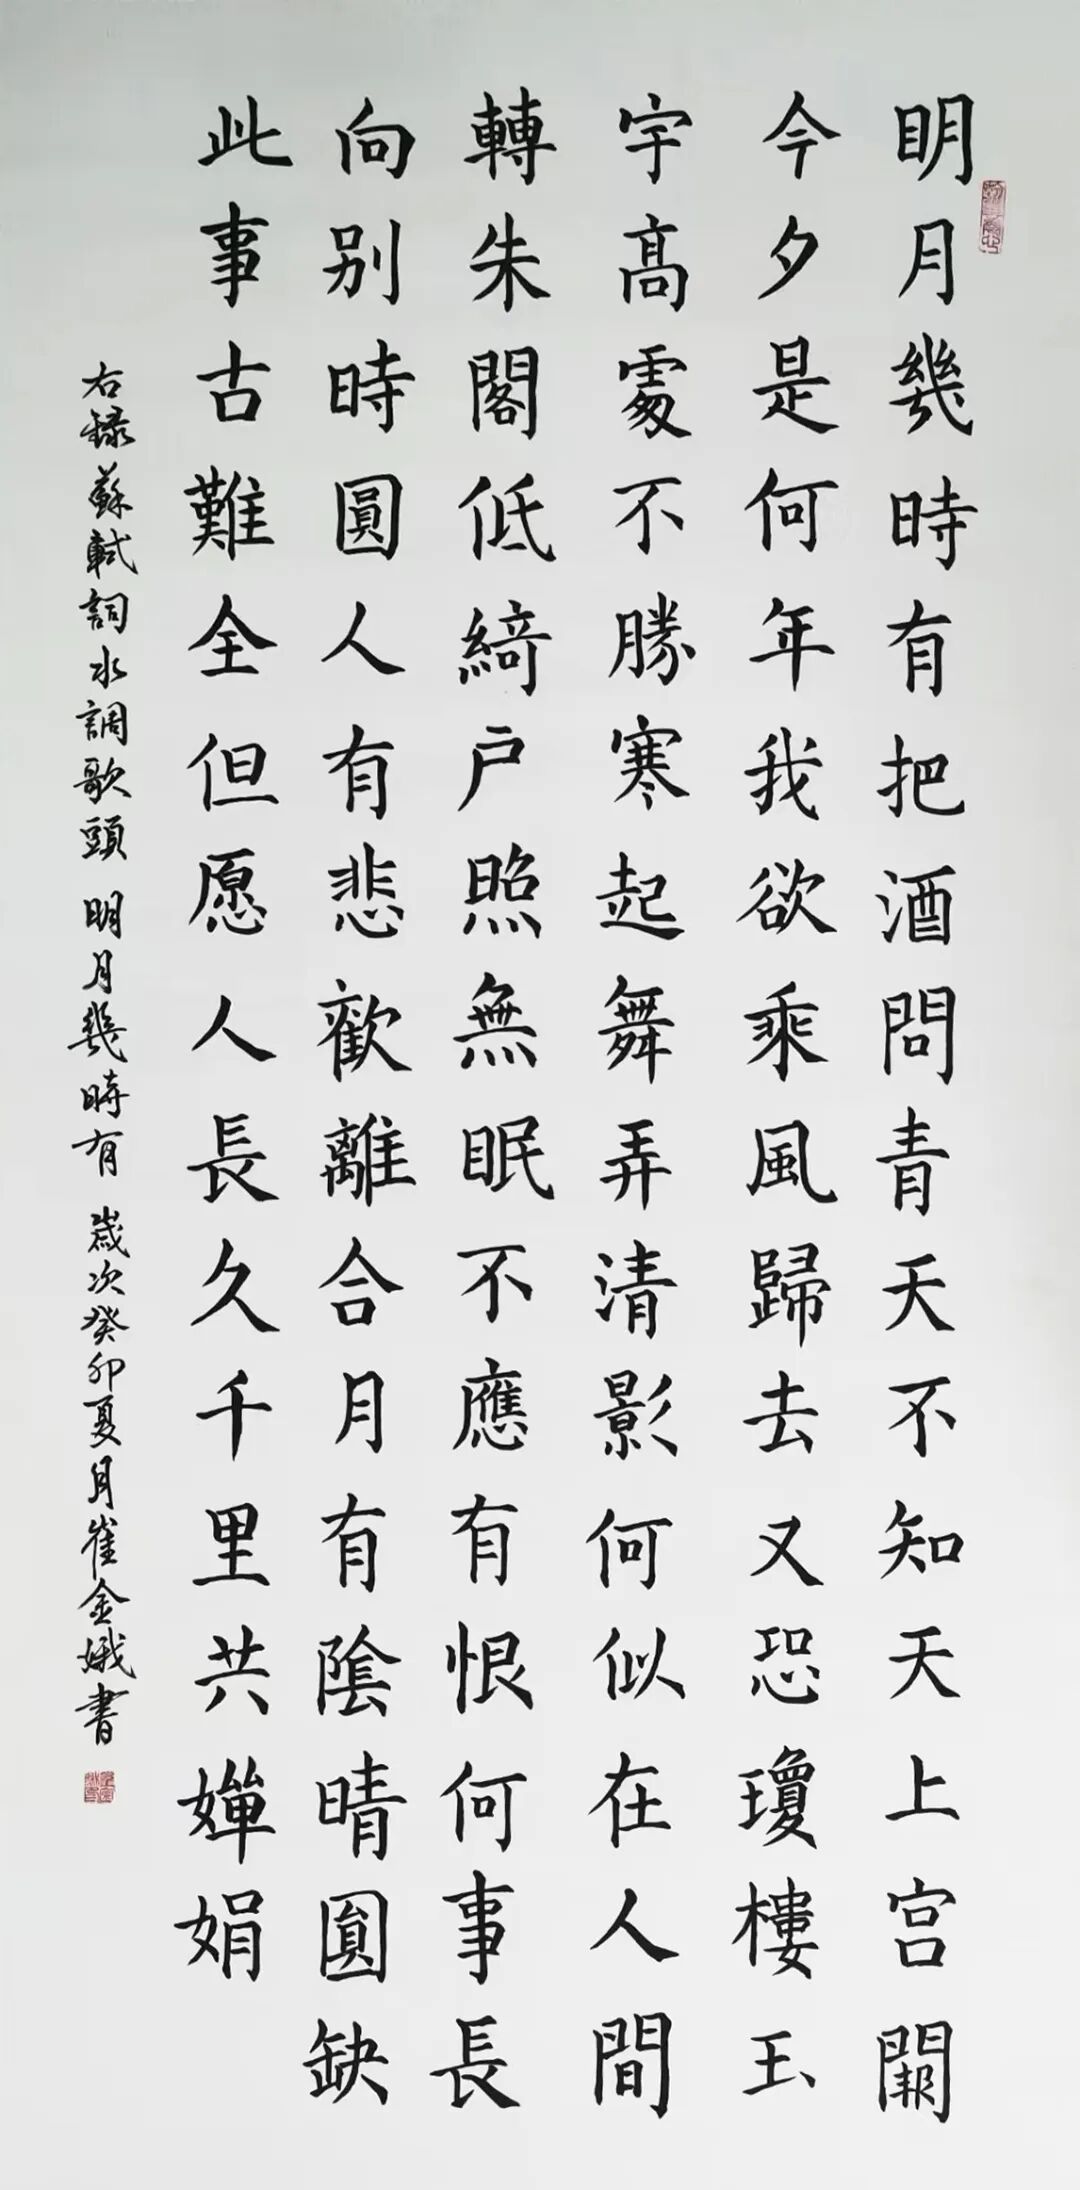 明月幾時有把酒問青天不知天上宫闕
今夕是何年我欲乘風歸去又恐瓊樓玉
宇高處不勝寒起舞弄清影何似在人間
轉朱閣低綺户照無眠不應有恨何事長
向别時圓人有悲歡離合月有陰晴圓缺
此事古難全但愿人長久千里共嬋娟
右録蘇軾詞水調歌頭 明月幾時有 歲次癸卯夏月崔金娥書